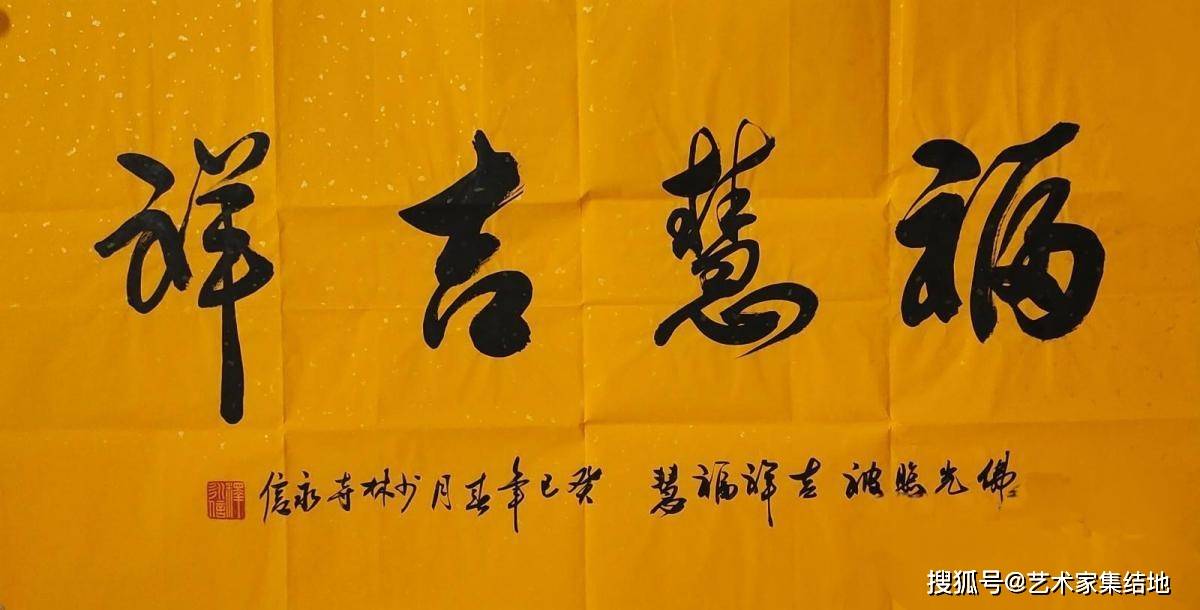 福慧吉祥
佛光照被吉祥福慧 癸巳年春月少林寺永信
釋永信
搜狐号@艺术家集结地